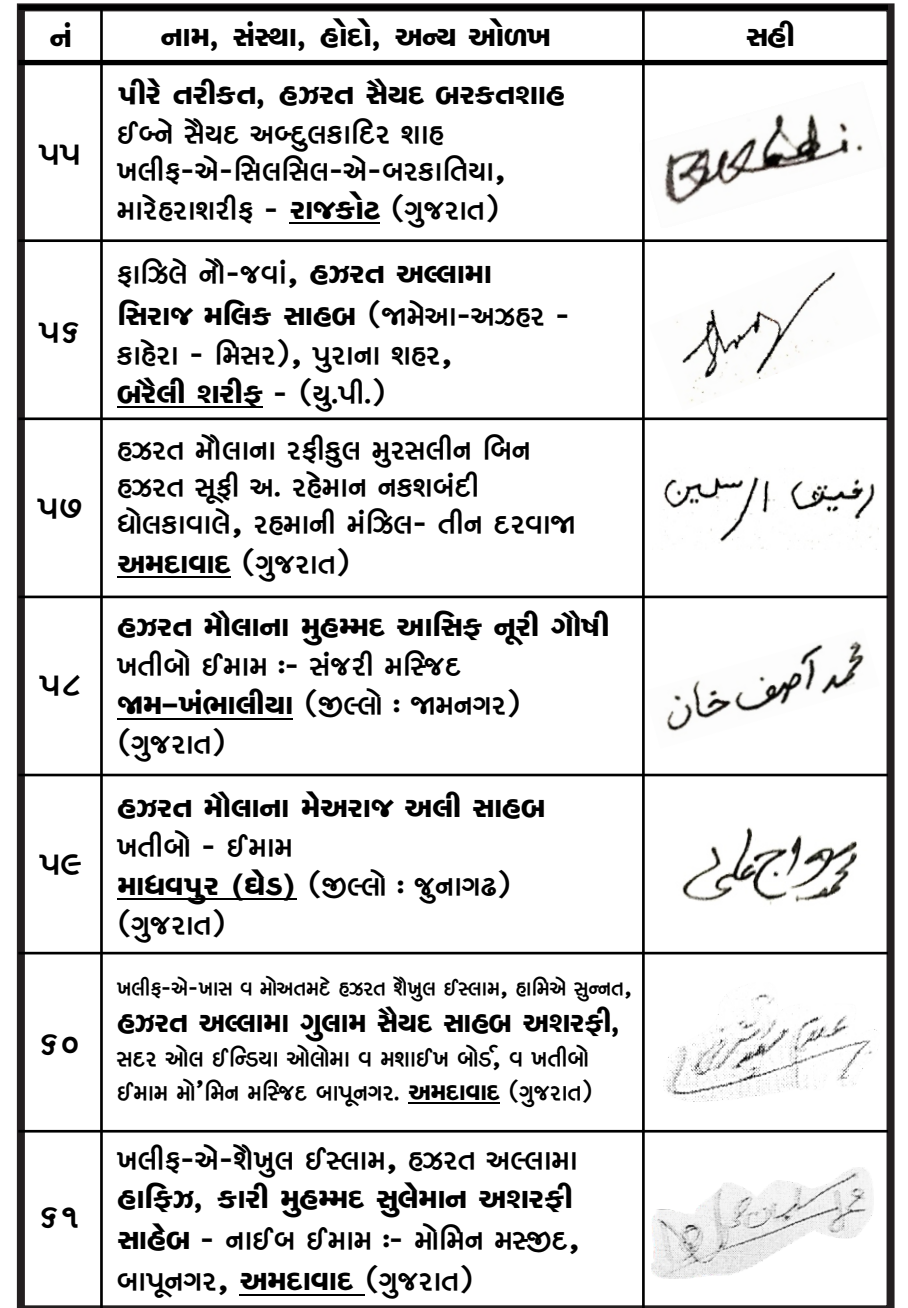 નં નામ, સંસ્થા, હોદો, અન્ય ઓળખ સહી
૫૫
પીરે તરીકત, હઝરત સૈયદ બરકતશાહ
ઈબ્ને સૈયદ અબ્દુલકાદિર શાહ
ખલીફ-એ-સિલસિલ-એ-બરકાતિયા,
મારેહરાશરીફ - રાજકોટ (ગુજરાત)
૫૬
ફાઝિલે નૌ-જવાં, હઝરત અલ્લામા
સિરાજ મલિક સાહબ (જામેઆ-અઝહર -
કાહેરા - મિસર), પુરાના શહર,
બરૈલી શરીફ - (યુ.પી.)
૫૭
હઝરત મૌલાના રફીકુલ મુરસલીન બિન
હઝરત સૂફી અ. રહેમાન નકશબંદી
ધોલકાવાલે, રહમાની મંઝિલ- તીન દરવાજા
અમદાવાદ (ગુજરાત)
૫૮
હઝરત મૌલાના મુહમ્મદ આસિફ નૂરી ગૌષી
ખતીબો ઈમામ :- સંજરી મસ્જિદ
જામ-ખંભાલીયા (જીલ્લો : જામનગર)
(ગુજરાત)
محمد آصف خان
૫૯
હઝરત મૌલાના મેઅરાજ અલી સાહબ
ખતીબો - ઈમામ
માધવપુર (ઘેડ) (જીલ્લો : જુનાગઢ)
(ગુજરાત)
૬૦
ખલીફ-એ-ખાસ વ મોઅતમદે હઝરત શૈખુલ ઈસ્લામ, હામિએ સુન્નત,
હઝરત અલ્લામા ગુલામ સૈયદ સાહબ અશરફી,
સદર ઓલ ઈન્ડિયા ઓલોમા વ મશાઈખ બોર્ડ, વ ખતીબો
ઈમામ મો'મિન મસ્જિદ બાપૂનગર. અમદાવાદ (ગુજરાત)
૬૧
ખલીફ-એ-શૈખુલ ઈસ્લામ, હઝરત અલ્લામા
હાફિઝ, કારી મુહમ્મદ સુલેમાન અશરફી
સાહેબ - નાઈબ ઈમામ :- મોમિન મસ્જીદ,
બાપૂનગર, અમદાવાદ (ગુજરાત)